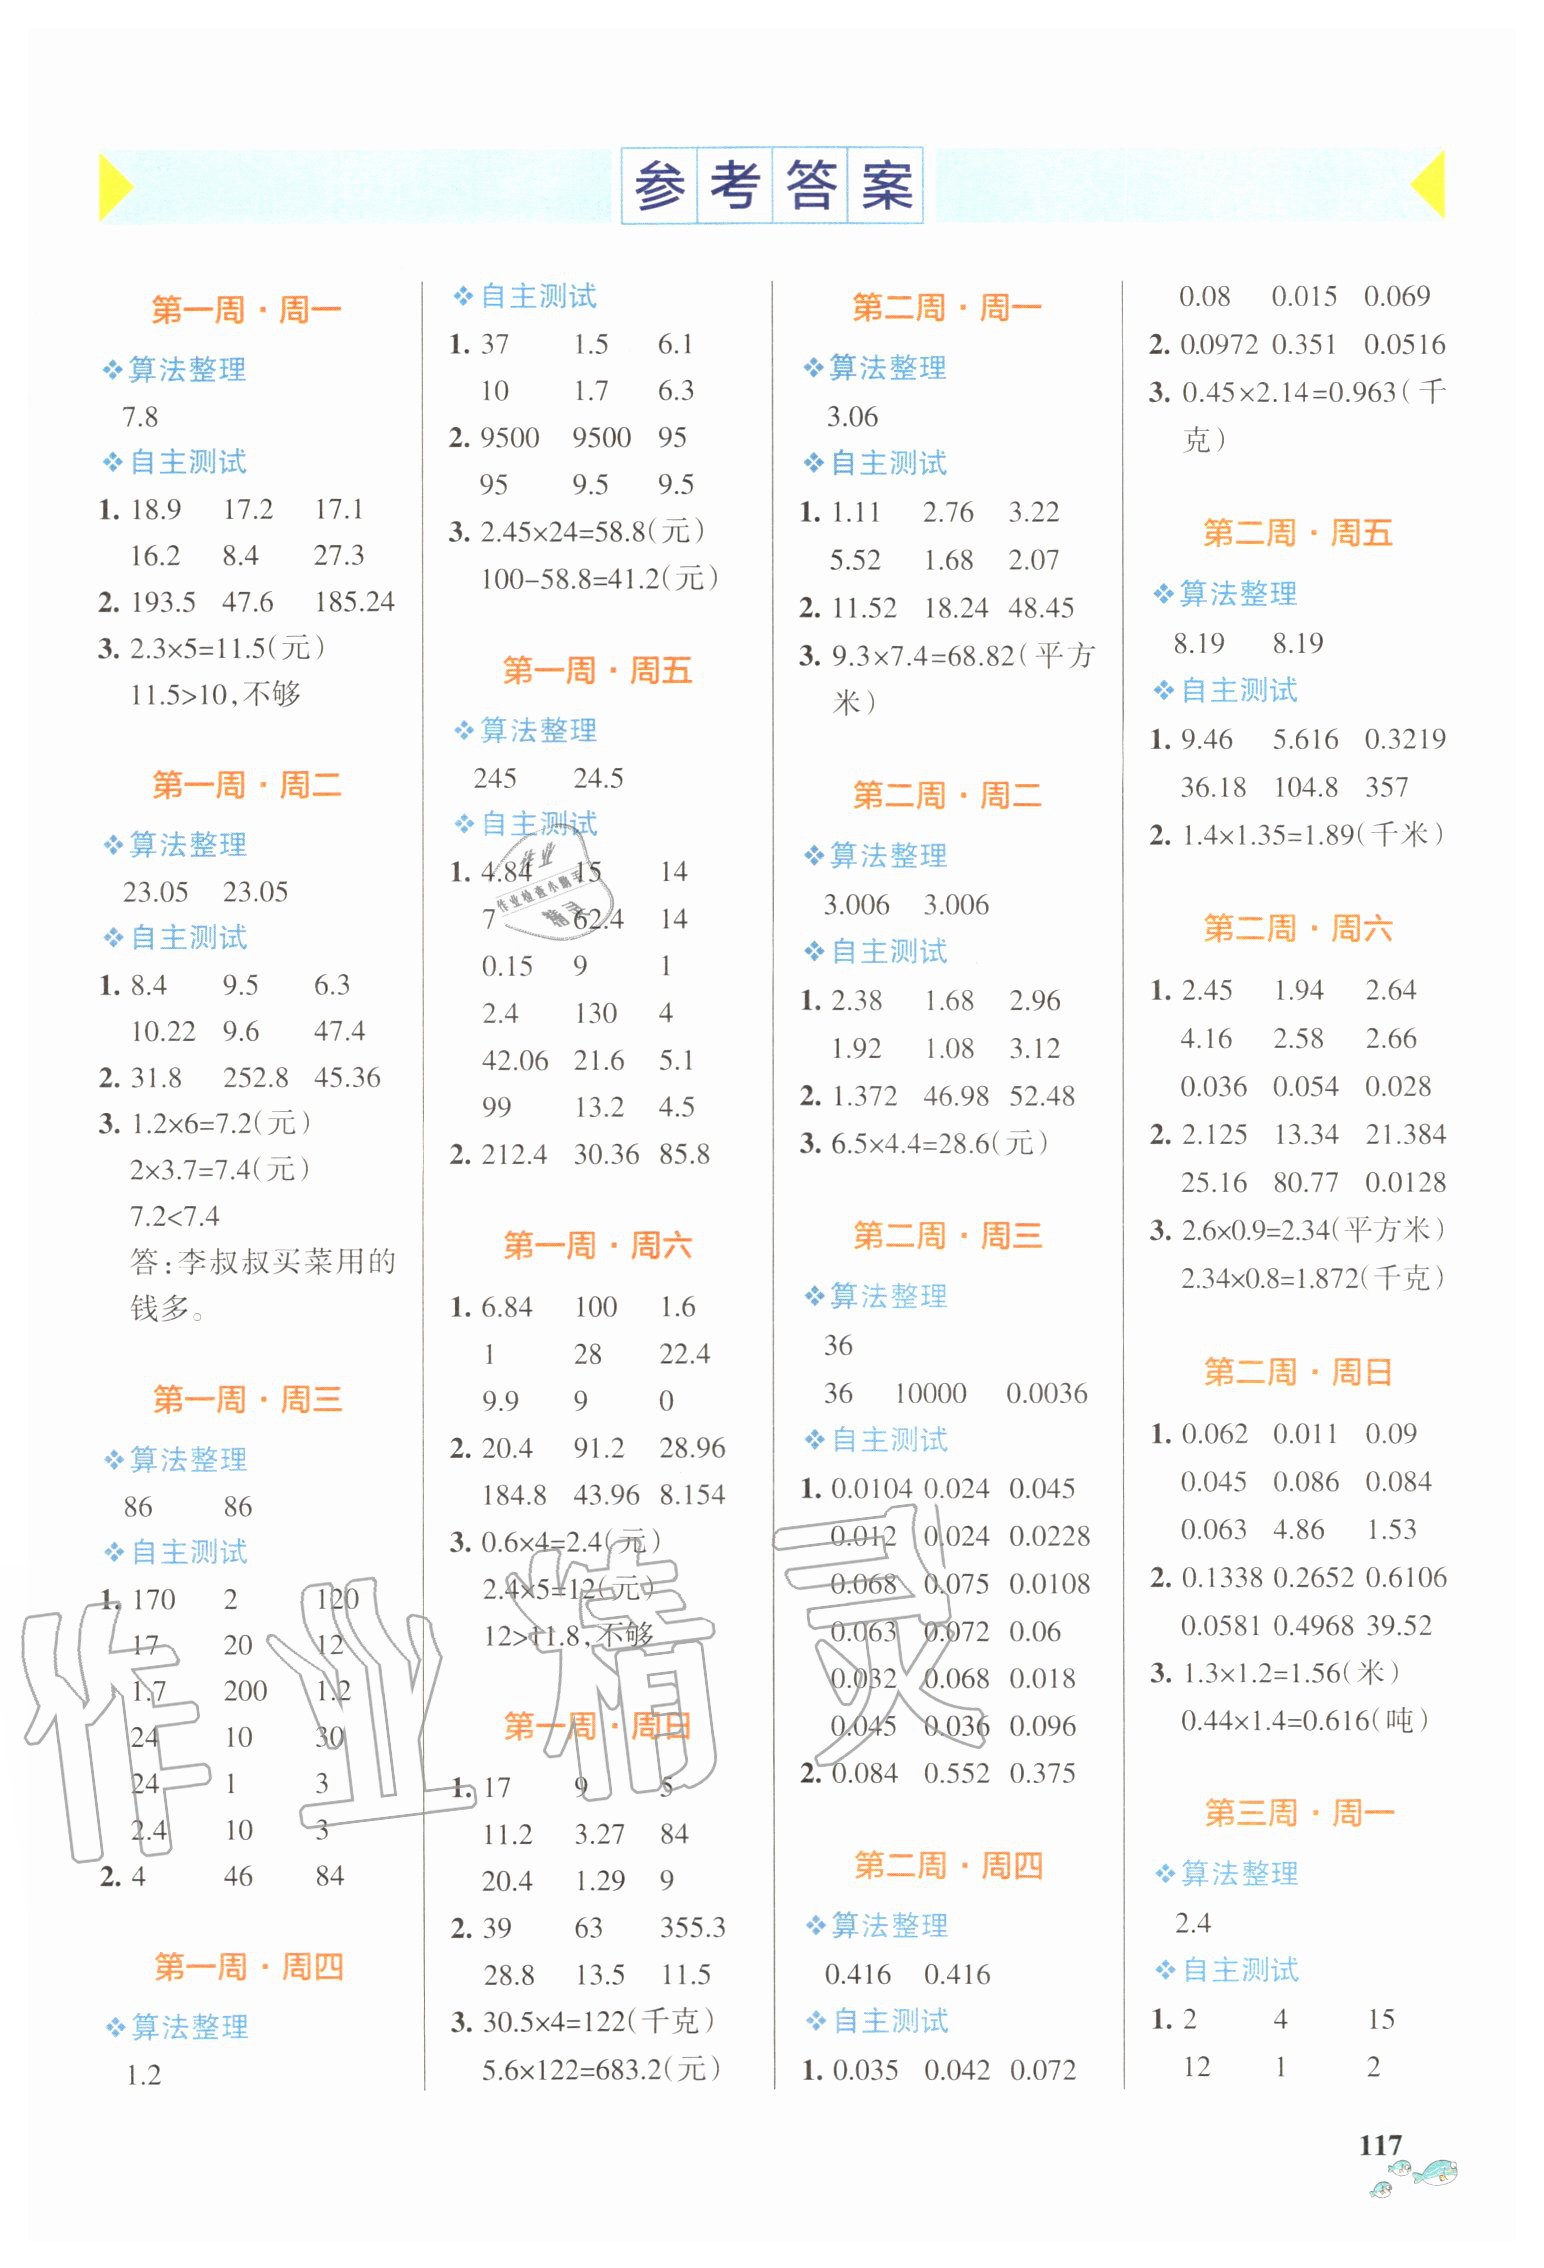 参考答案
第一周·周一
❖算法整理
7.8
❖自主测试
1. 18.9 17.2 17.1
16.2 8.4 27.3
2. 193.5 47.6 185.24
3. 2.3×5=11.5(元)
11.5>10,不够
第一周·周二
❖算法整理
23.05 23.05
❖自主测试
1. 8.4 9.5 6.3
10.22 9.6 47.4
2. 31.8 252.8 45.36
3. 1.2×6=7.2(元)
2×3.7=7.4(元)
7.2<7.4
答:李叔叔买菜用的
钱多。
第一周·周三
❖算法整理
86 86
❖自主测试
1. 170 2 120
17 20 12
1.7 200 1.2
24 10 30
24 1 3
2.4 10 3
2. 4 46 84
第一周·周四
❖算法整理
1.2
❖自主测试
1. 37 1.5 6.1
10 1.7 6.3
2. 9500 9500 95
95 9.5 9.5
3. 2.45×24=58.8(元)
100-58.8=41.2(元)
第一周·周五
❖算法整理
245 24.5
❖自主测试
1. 4.84 15 14
7 62.4 14
0.15 9 1
2.4 130 4
42.06 21.6 5.1
99 13.2 4.5
2. 212.4 30.36 85.8
第一周·周六
1. 6.84 100 1.6
1 28 22.4
9.9 9 0
2. 20.4 91.2 28.96
184.8 43.96 8.154
3. 0.6×4=2.4(元)
2.4×5=12(元)
12>11.8,不够
第一周·周日
1. 17 9 5
11.2 3.27 84
20.4 1.29 9
2. 39 63 355.3
28.8 13.5 11.5
3. 30.5×4=122(千克)
5.6×122=683.2(元)
第二周·周一
❖算法整理
3.06
❖自主测试
1. 1.11 2.76 3.22
5.52 1.68 2.07
2. 11.52 18.24 48.45
3. 9.3×7.4=68.82(平方
米)
第二周·周二
❖算法整理
3.006 3.006
❖自主测试
1. 2.38 1.68 2.96
1.92 1.08 3.12
2. 1.372 46.98 52.48
3. 6.5×4.4=28.6(元)
第二周·周三
❖算法整理
36
36 10000 0.0036
❖自主测试
1. 0.0104 0.024 0.045
0.012 0.024 0.0228
0.068 0.075 0.0108
0.063 0.072 0.06
0.032 0.068 0.018
0.045 0.036 0.096
2. 0.084 0.552 0.375
第二周·周四
❖算法整理
0.416 0.416
❖自主测试
1. 0.035 0.042 0.072
0.08 0.015 0.069
2. 0.0972 0.351 0.0516
3. 0.45×2.14=0.963(千
克)
第二周·周五
❖算法整理
8.19 8.19
❖自主测试
1. 9.46 5.616 0.3219
36.18 104.8 357
2. 1.4×1.35=1.89(千米)
第二周·周六
1. 2.45 1.94 2.64
4.16 2.58 2.66
0.036 0.054 0.028
2. 2.125 13.34 21.384
25.16 80.77 0.0128
3. 2.6×0.9=2.34(平方米)
2.34×0.8=1.872(千克)
第二周·周日
1. 0.062 0.011 0.09
0.045 0.086 0.084
0.063 4.86 1.53
2. 0.1338 0.2652 0.6106
0.0581 0.4968 39.52
3. 1.3×1.2=1.56(米)
0.44×1.4=0.616(吨)
第三周·周一
❖算法整理
2.4
❖自主测试
1. 2 4 15
12 1 2
117
作业
作业检查小助手
精灵
作业精灵